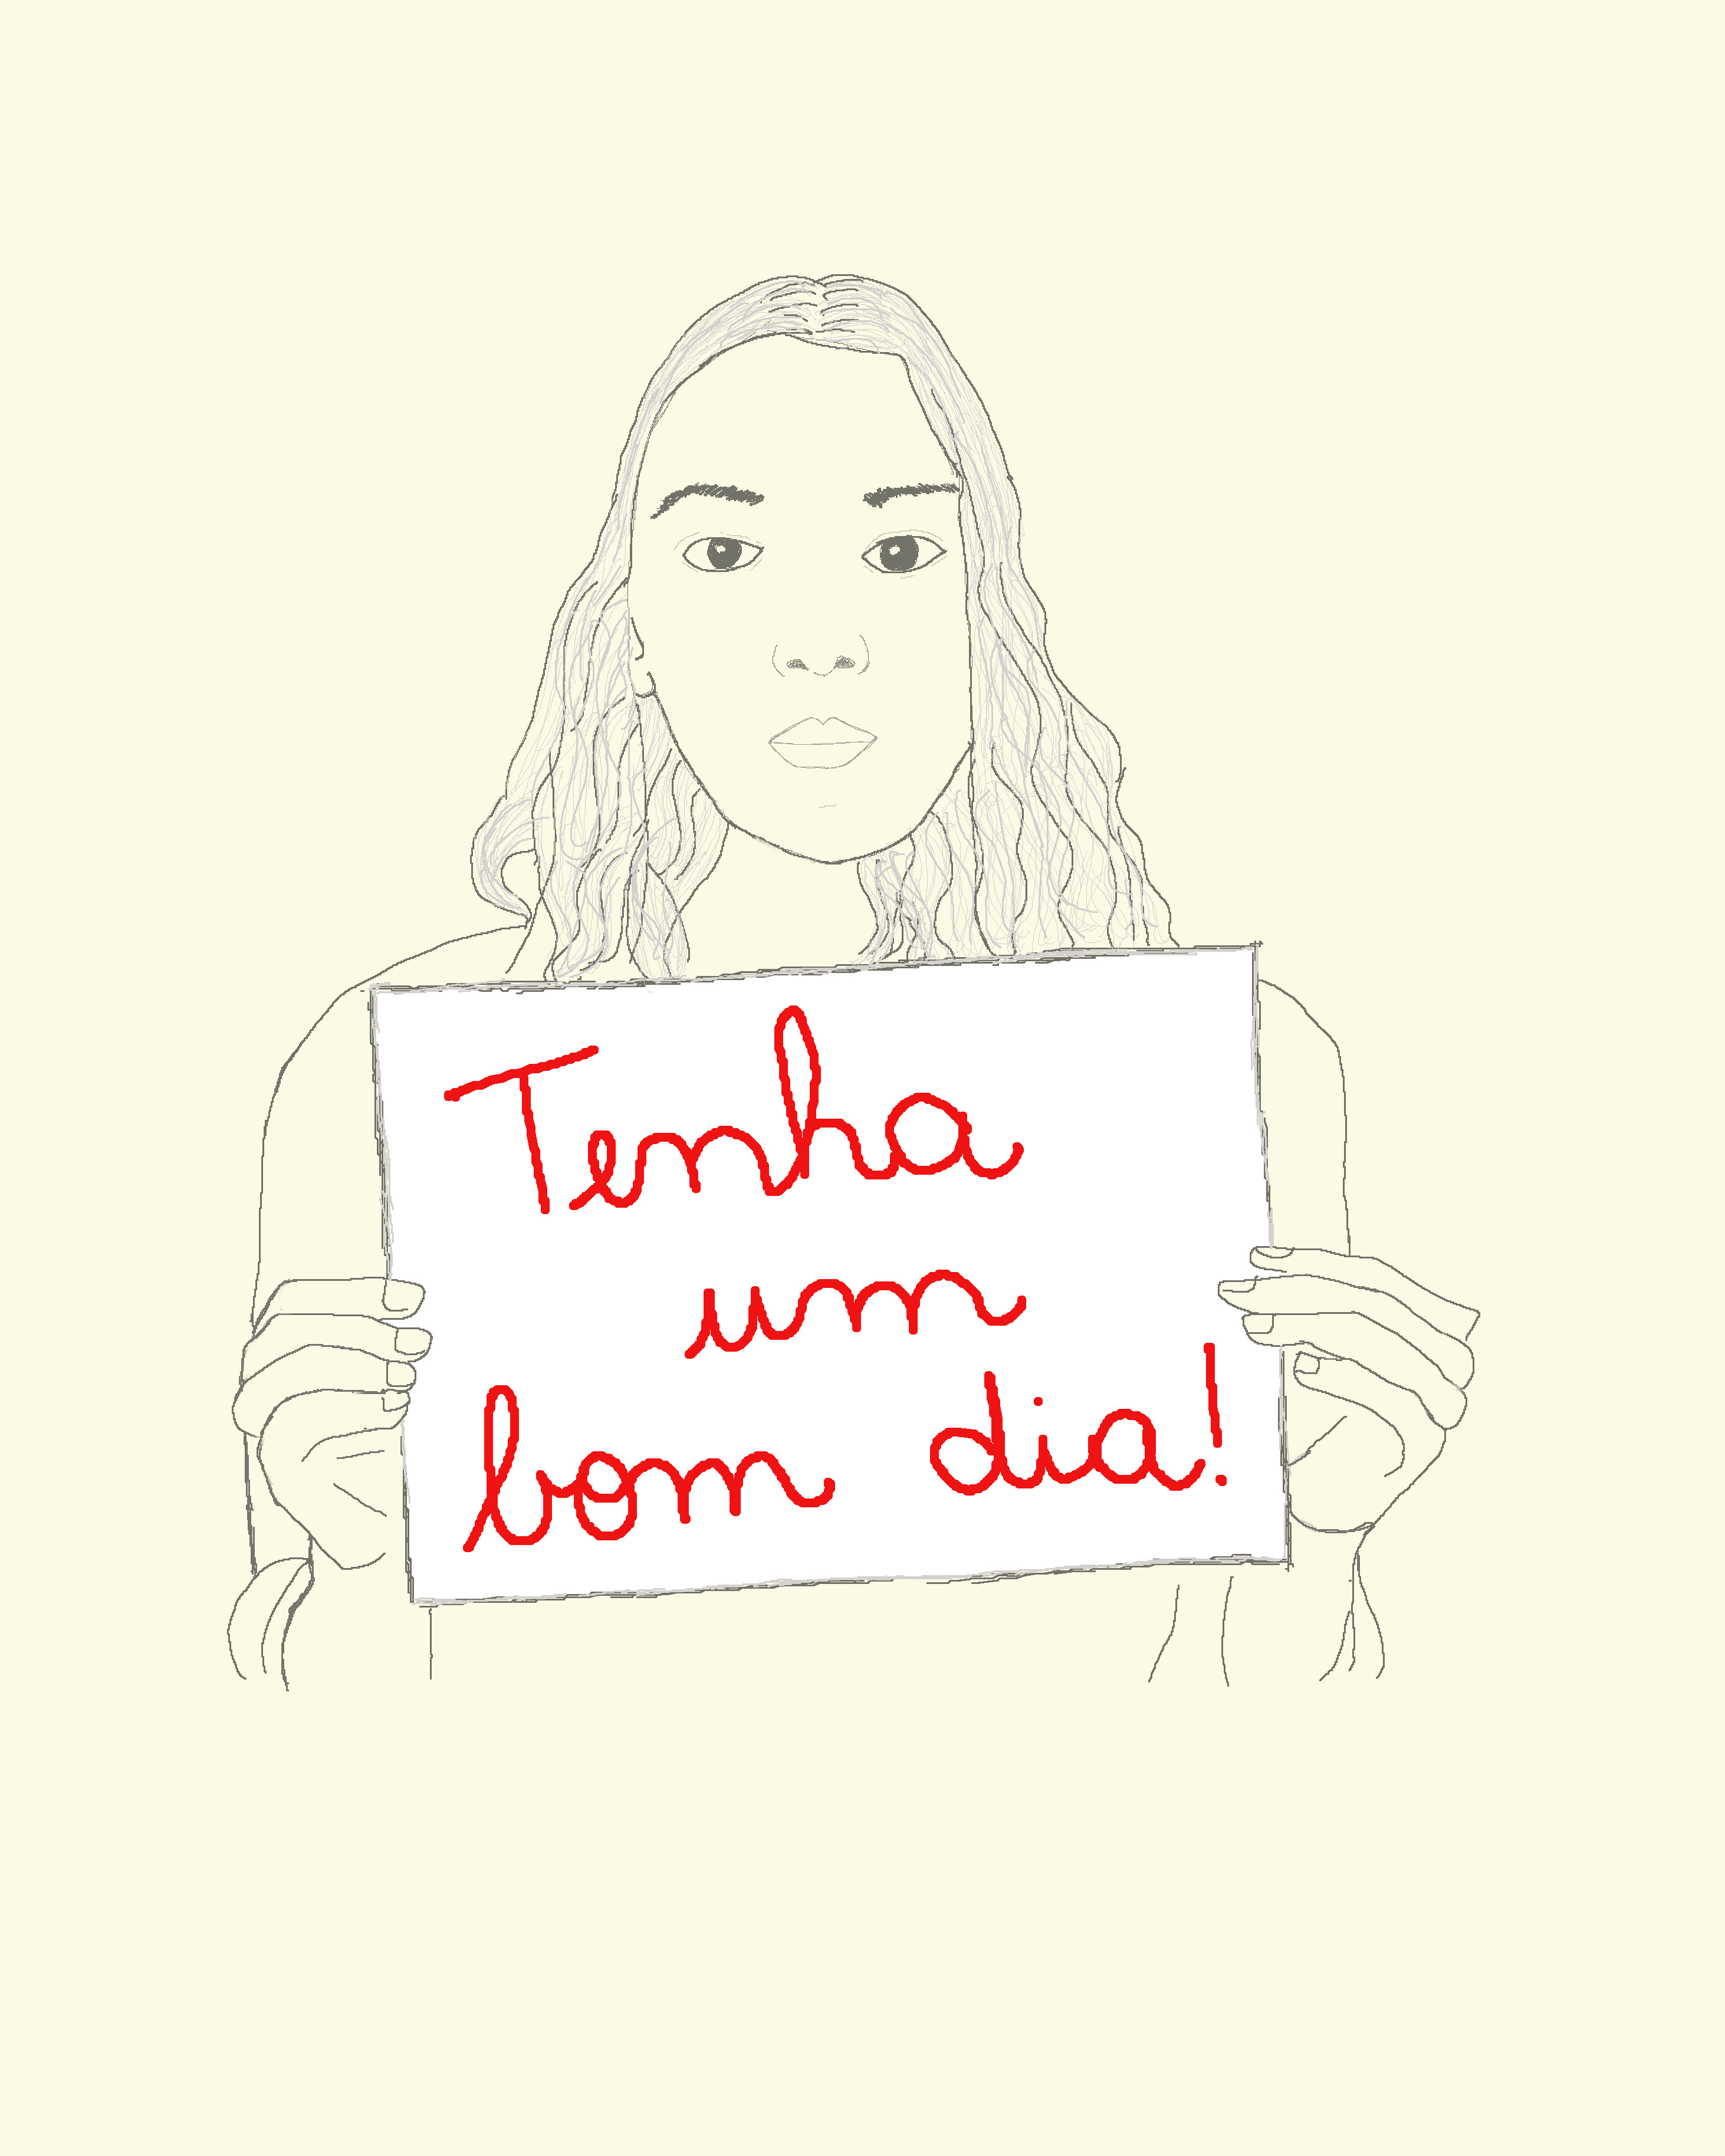 Tenha
um
bom dia!